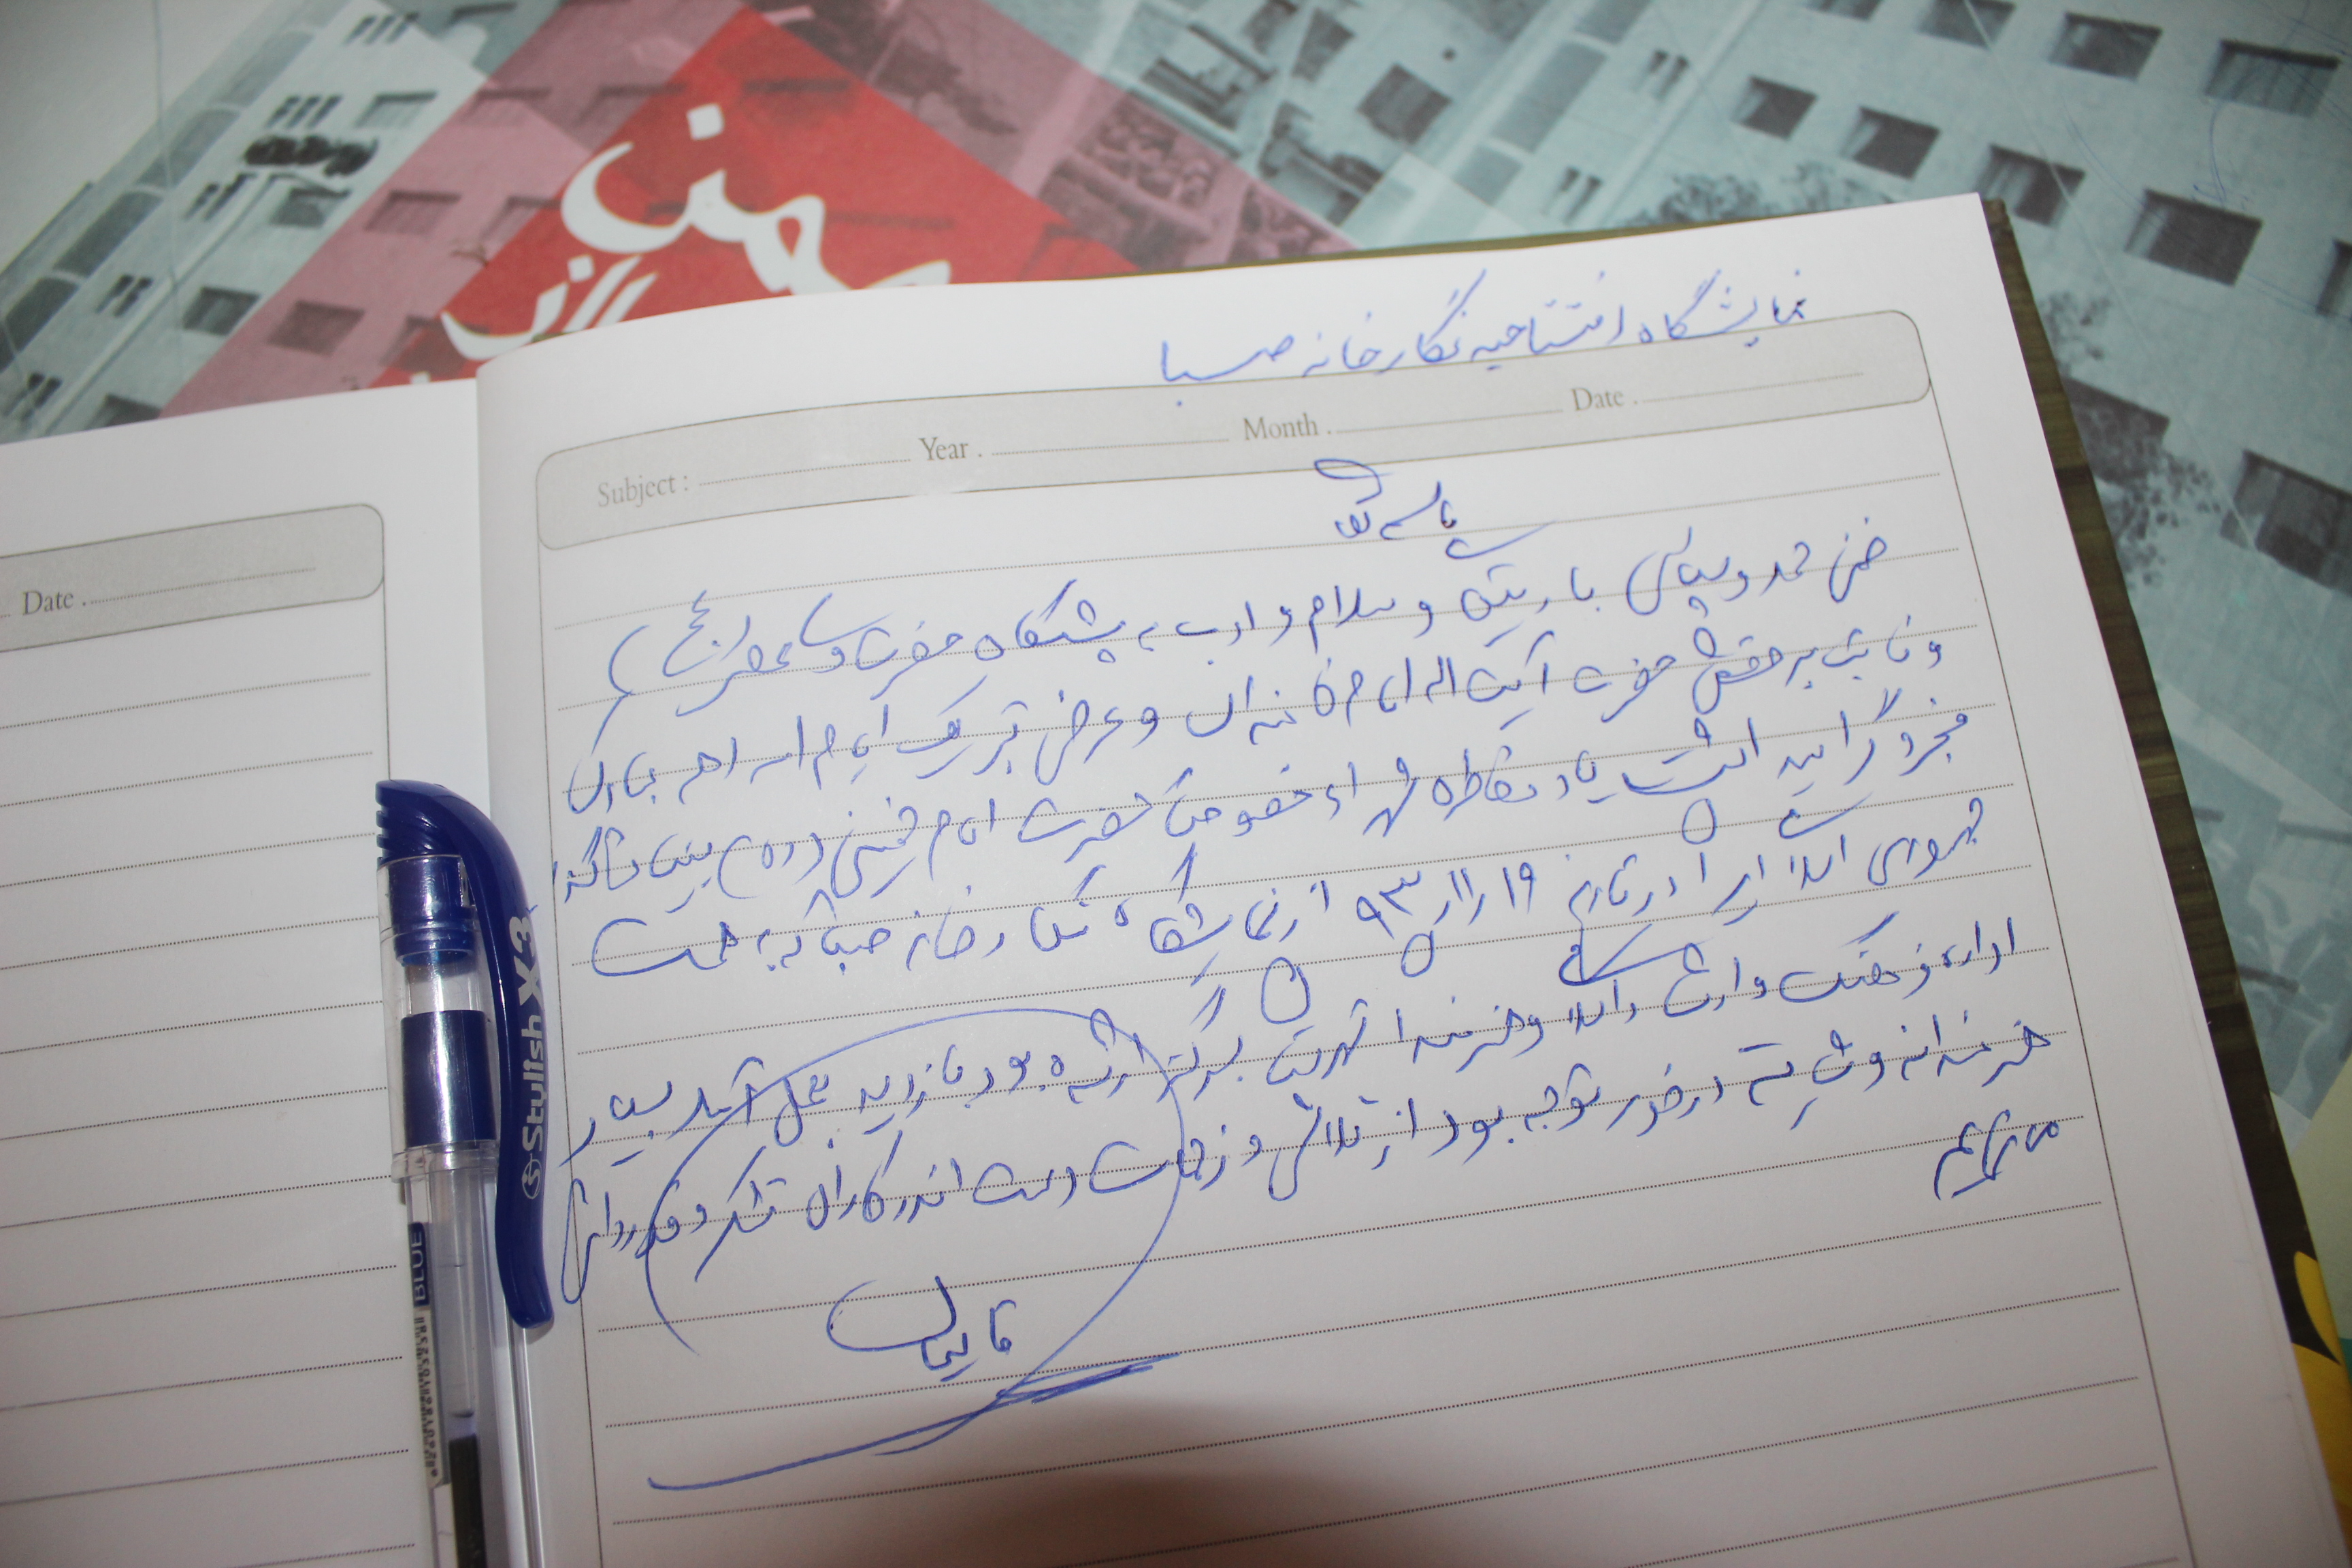 بهمن
نمایشگاه افتتاحیه نگارخانه صبا
Subject : Year . Month . Date .
Date .
باسمه تعالی
ضمن حمد و سپاس باریتعالی و سلام و ادب به پیشگاه حضرت ولیعصر (عج)
و نایب برحقش حضرت آیت اله امام خامنه ای و عرض تبریک ایام اله دهه مبارک
فجر و گرامیداشت یاد و خاطره شهداء خصوصا حضرت امام خمینی (ره) بنیانگذار
جمهوری اسلامی ایران در تاریخ ۱۹ر۱۱ر۹۳ از نمایشگاه نگارخانه صبا که به همت
اداره فرهنگ و ارشاد اسلامی و هنرمندان برگزار شده بود بازدید بعمل آمد بسیار
هنرمندانه و شایسته درخور توجه بود از تلاش و زحمات دست اندرکاران تشکر و قدردانی
می نمایم
Stylish X3
BLUE